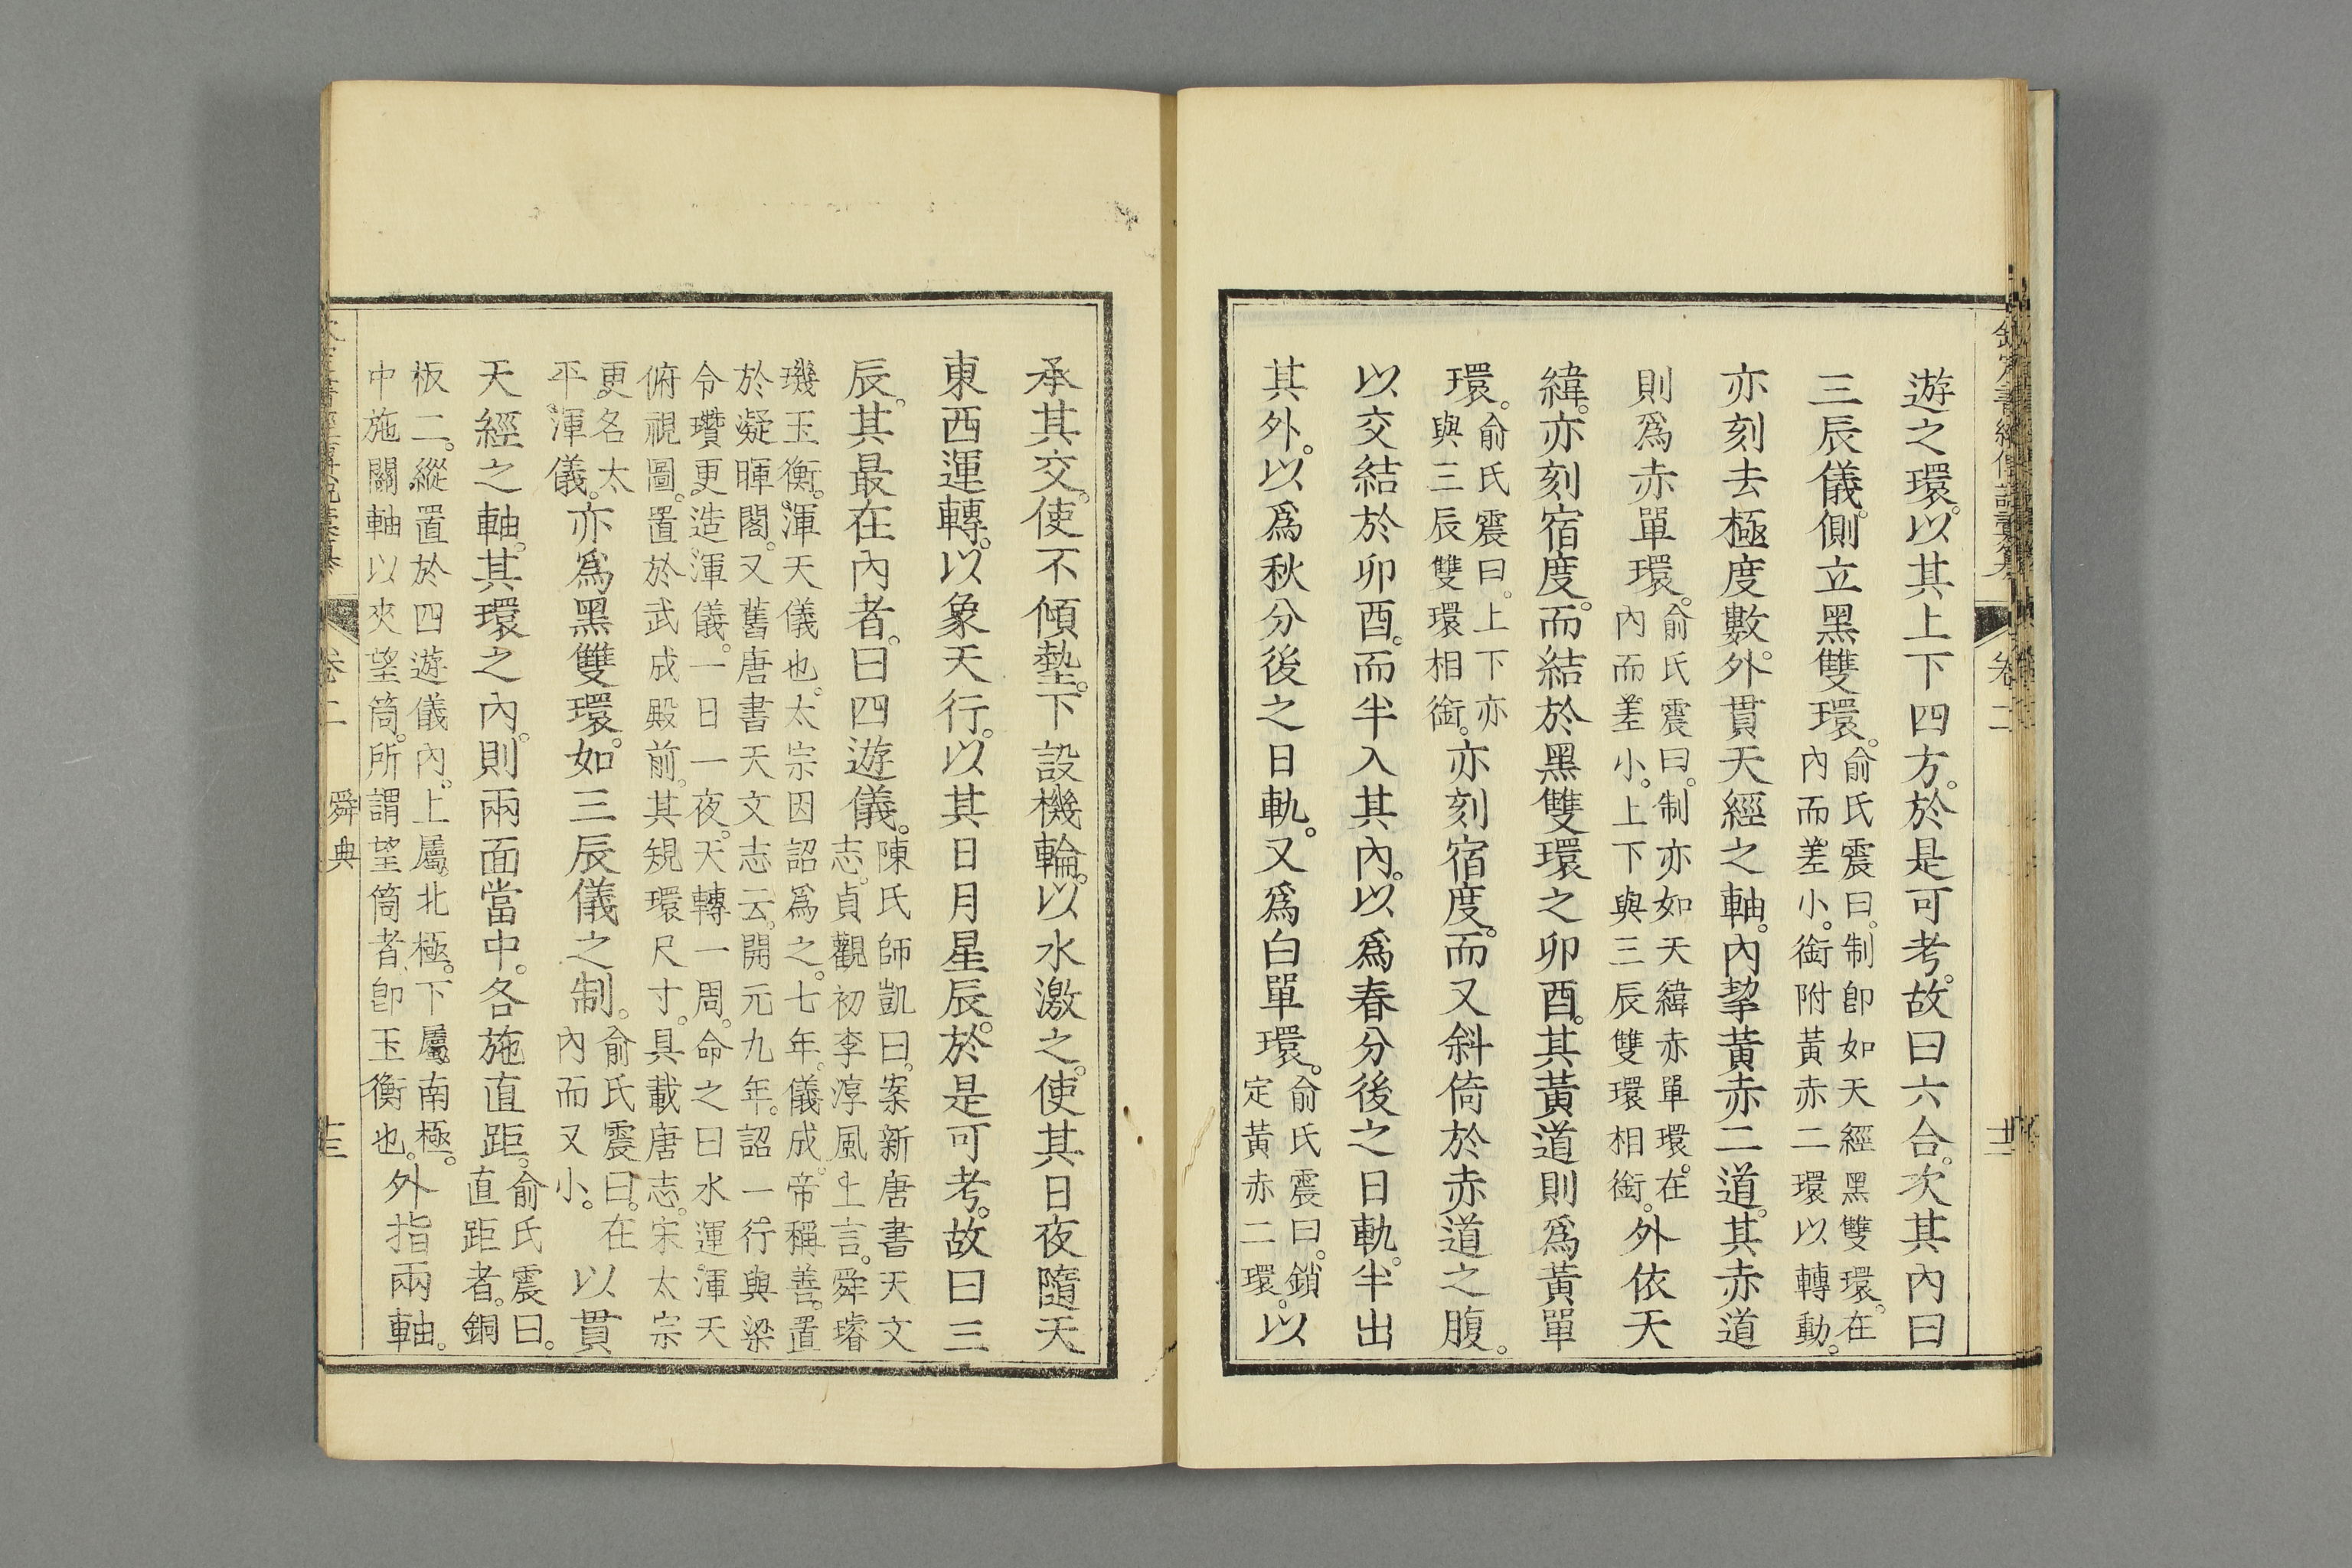 遊之環。以其上下四方。於是可考。故曰六合。次其內曰
三辰儀。側立黑雙環。俞氏震曰。制卽如天經黑雙環。在
內而差小。銜附黃赤二環以轉動。
亦刻去極度數。外貫天經之軸。內挈黃赤二道。其赤道
則爲赤單環。俞氏震曰。制亦如天緯赤單環。在
內而差小。上下與三辰雙環相銜。外依天
緯。亦刻宿度。而結於黑雙環之卯酉。其黃道則爲黃單
環。俞氏震曰。上下亦
與三辰雙環相銜。亦刻宿度。而又斜倚於赤道之腹。
以交結於卯酉。而半入其內。以爲春分後之日軌。半出
其外。以爲秋分後之日軌。又爲白單環。俞氏震曰。鎖
定黃赤二環。以
承其交。使不傾墊。下設機輪。以水激之。使其日夜隨天
東西運轉。以象天行。以其日月星辰。於是可考。故曰三
辰。其最在內者。曰四遊儀。陳氏師凱曰。案新唐書天文
志。貞觀初李淳風上言。舜璿
璣玉衡。渾天儀也。太宗因詔爲之。七年。儀成。帝稱善。置
於凝暉閣。又舊唐書天文志云。開元九年。詔一行與梁
令瓚更造渾儀。一日一夜。天轉一周。命之曰水運渾天
俯視圖。置於武成殿前。其規環尺寸。具載唐志。宋太宗
更名太
平渾儀。亦爲黑雙環。如三辰儀之制。俞氏震曰。在
內而又小。以貫
天經之軸。其環之內。則兩面當中。各施直距。俞氏震曰。
直距者。銅
板二。縱置於四遊儀內。上屬北極。下屬南極。
中施關軸以夾望筒。所謂望筒者。卽玉衡也。外指兩軸。
卷二
舜典